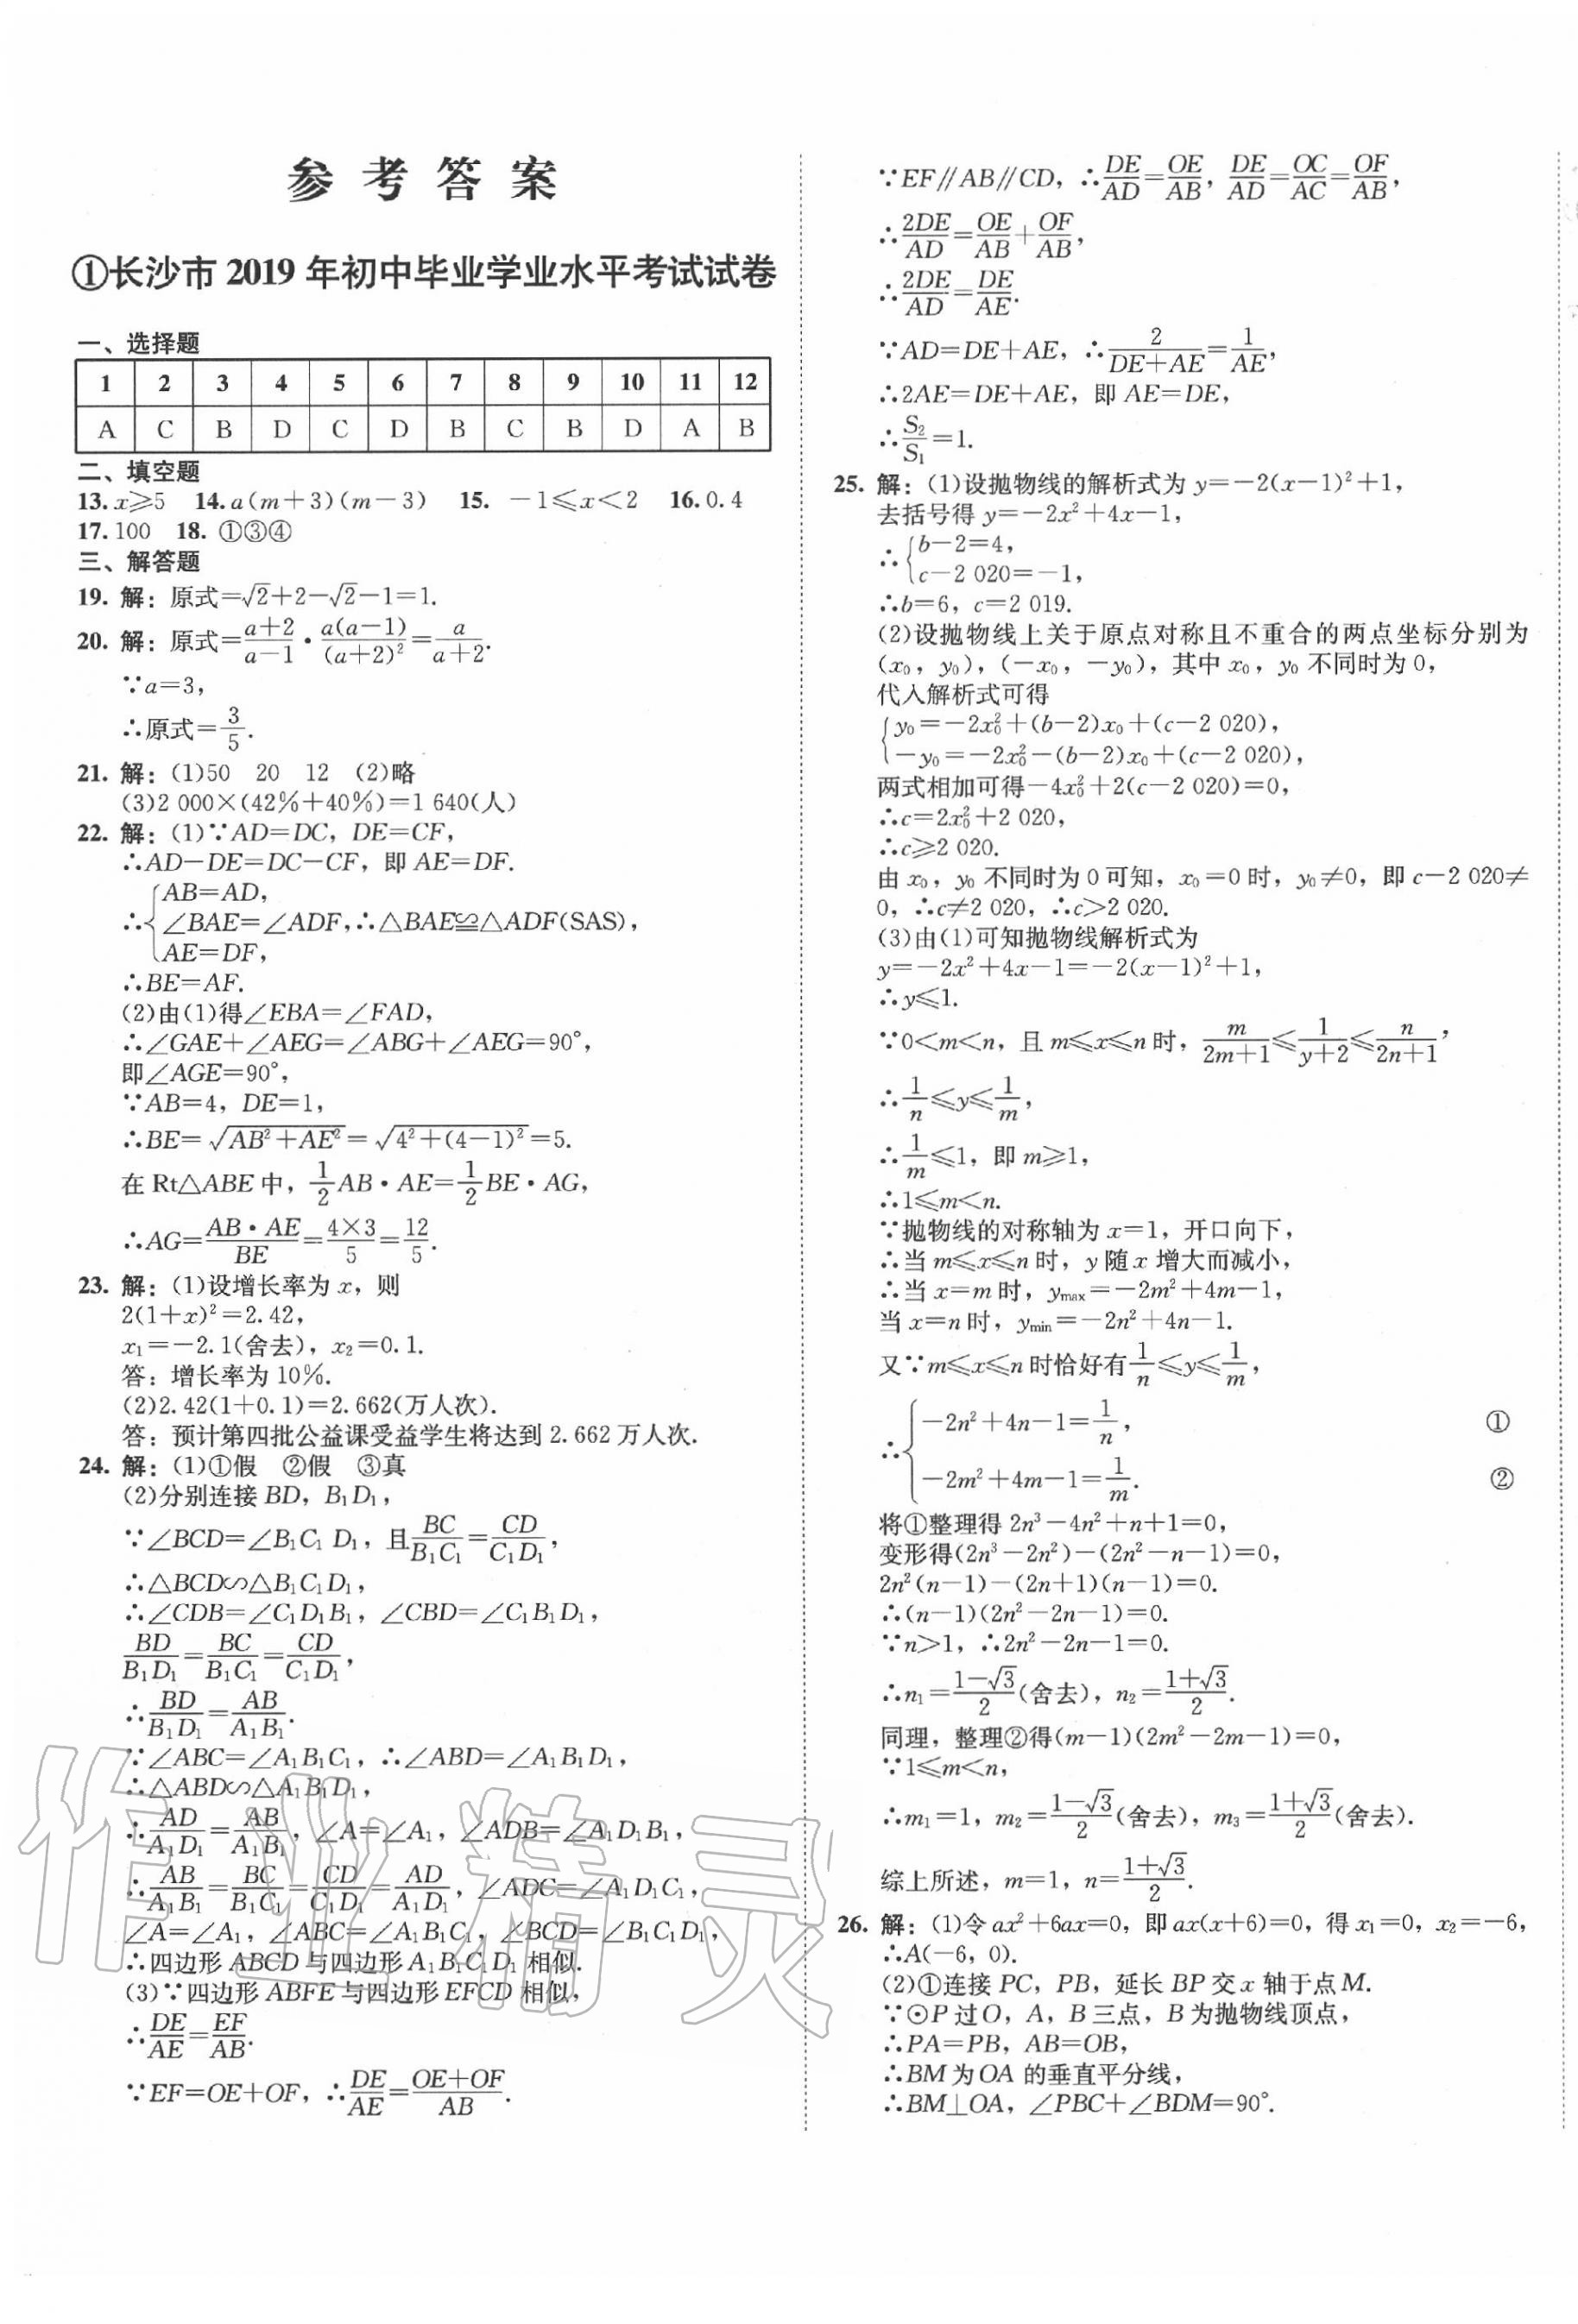 参考答案
①长沙市 2019 年初中毕业学业水平考试试卷
一、选择题
1 2 3 4 5 6 7 8 9 10 11 12
A C B D C D B C B D A B
二、填空题
13. x⩾5 14. a(m+3)(m-3) 15. -1⩽x<2 16. 0.4
17. 100 18. ①③④
三、解答题
19. 解：原式=√2+2-√2-1=1.
20. 解：原式=(a+2)/(a-1)·a(a-1)/(a+2)²=a/(a+2).
∵a=3，
∴原式=3/5.
21. 解：(1)50 20 12 (2)略
(3)2 000×(42%+40%)=1 640(人)
22. 解：(1)∵AD=DC，DE=CF，
∴AD-DE=DC-CF，即 AE=DF.
∴{AB=AD，
∠BAE=∠ADF，∴△BAE≌△ADF(SAS)，
AE=DF，
∴BE=AF.
(2)由(1)得∠EBA=∠FAD，
∴∠GAE+∠AEG=∠ABG+∠AEG=90°，
即∠AGE=90°，
∵AB=4，DE=1，
∴BE=√(AB²+AE²)=√(4²+(4-1)²)=5.
在 Rt△ABE 中，1/2 AB·AE=1/2 BE·AG，
∴AG=AB·AE/BE=4×3/5=12/5.
23. 解：(1)设增长率为 x，则
2(1+x)²=2.42，
x₁=-2.1(舍去)，x₂=0.1.
答：增长率为 10%.
(2)2.42(1+0.1)=2.662(万人次).
答：预计第四批公益课受益学生将达到 2.662 万人次.
24. 解：(1)①假 ②假 ③真
(2)分别连接 BD，B₁D₁，
∵∠BCD=∠B₁C₁D₁，且BC/B₁C₁=CD/C₁D₁，
∴△BCD∽△B₁C₁D₁，
∴∠CDB=∠C₁D₁B₁，∠CBD=∠C₁B₁D₁，
BD/B₁D₁=BC/B₁C₁=CD/C₁D₁，
∴BD/B₁D₁=AB/A₁B₁.
∵∠ABC=∠A₁B₁C₁，∴∠ABD=∠A₁B₁D₁，
∴△ABD∽△A₁B₁D₁，
∴AD/A₁D₁=AB/A₁B₁，∠A=∠A₁，∠ADB=∠A₁D₁B₁，
∴AB/A₁B₁=BC/B₁C₁=CD/C₁D₁=AD/A₁D₁，∠ADC=∠A₁D₁C₁，
∠A=∠A₁，∠ABC=∠A₁B₁C₁，∠BCD=∠B₁C₁D₁，
∴四边形 ABCD 与四边形 A₁B₁C₁D₁ 相似.
(3)∵四边形 ABFE 与四边形 EFCD 相似，
∴DE/AE=EF/AB.
∵EF=OE+OF，∴DE/AE=(OE+OF)/AB.
∵EF∥AB∥CD，∴DE/AD=OE/AB，DE/AD=OC/AC=OF/AB，
∴2DE/AD=OE/AB+OF/AB，
∴2DE/AD=DE/AE.
∵AD=DE+AE，∴2/(DE+AE)=1/AE，
∴2AE=DE+AE，即 AE=DE，
∴S₂/S₁=1.
25. 解：(1)设抛物线的解析式为 y=-2(x-1)²+1，
去括号得 y=-2x²+4x-1，
∴{b-2=4，
c-2 020=-1，
∴b=6，c=2 019.
(2)设抛物线上关于原点对称且不重合的两点坐标分别为
(x₀，y₀)，(-x₀，-y₀)，其中 x₀，y₀ 不同时为 0，
代入解析式可得
{y₀=-2x₀²+(b-2)x₀+(c-2 020)，
-y₀=-2x₀²-(b-2)x₀+(c-2 020)，
两式相加可得-4x₀²+2(c-2 020)=0，
∴c=2x₀²+2 020，
∴c⩾2 020.
由 x₀，y₀ 不同时为 0 可知，x₀=0 时，y₀≠0，即 c-2 020≠
0，∴c≠2 020，∴c>2 020.
(3)由(1)可知抛物线解析式为
y=-2x²+4x-1=-2(x-1)²+1，
∴y⩽1.
∵0<m<n，且 m⩽x⩽n 时，m/(2m+1)⩽1/(y+2)⩽n/(2n+1)，
∴1/n⩽y⩽1/m，
∴1/m⩽1，即 m⩾1，
∴1⩽m<n.
∵抛物线的对称轴为 x=1，开口向下，
∴当 m⩽x⩽n 时，y 随 x 增大而减小，
∴当 x=m 时，y_max=-2m²+4m-1，
当 x=n 时，y_min=-2n²+4n-1.
又∵m⩽x⩽n 时恰好有1/n⩽y⩽1/m，
∴{-2n²+4n-1=1/n， ①
-2m²+4m-1=1/m. ②
将①整理得 2n³-4n²+n+1=0，
变形得(2n³-2n²)-(2n²-n-1)=0，
2n²(n-1)-(2n+1)(n-1)=0.
∴(n-1)(2n²-2n-1)=0.
∵n>1，∴2n²-2n-1=0.
∴n₁=(1-√3)/2(舍去)，n₂=(1+√3)/2.
同理，整理②得(m-1)(2m²-2m-1)=0，
∵1⩽m<n，
∴m₁=1，m₂=(1-√3)/2(舍去)，m₃=(1+√3)/2(舍去).
综上所述，m=1，n=(1+√3)/2.
26. 解：(1)令 ax²+6ax=0，即 ax(x+6)=0，得 x₁=0，x₂=-6，
∴A(-6，0).
(2)①连接 PC，PB，延长 BP 交 x 轴于点 M.
∵⊙P 过 O，A，B 三点，B 为抛物线顶点，
∴PA=PB，AB=OB，
∴BM 为 OA 的垂直平分线，
∴BM⊥OA，∠PBC+∠BDM=90°.
作业精灵